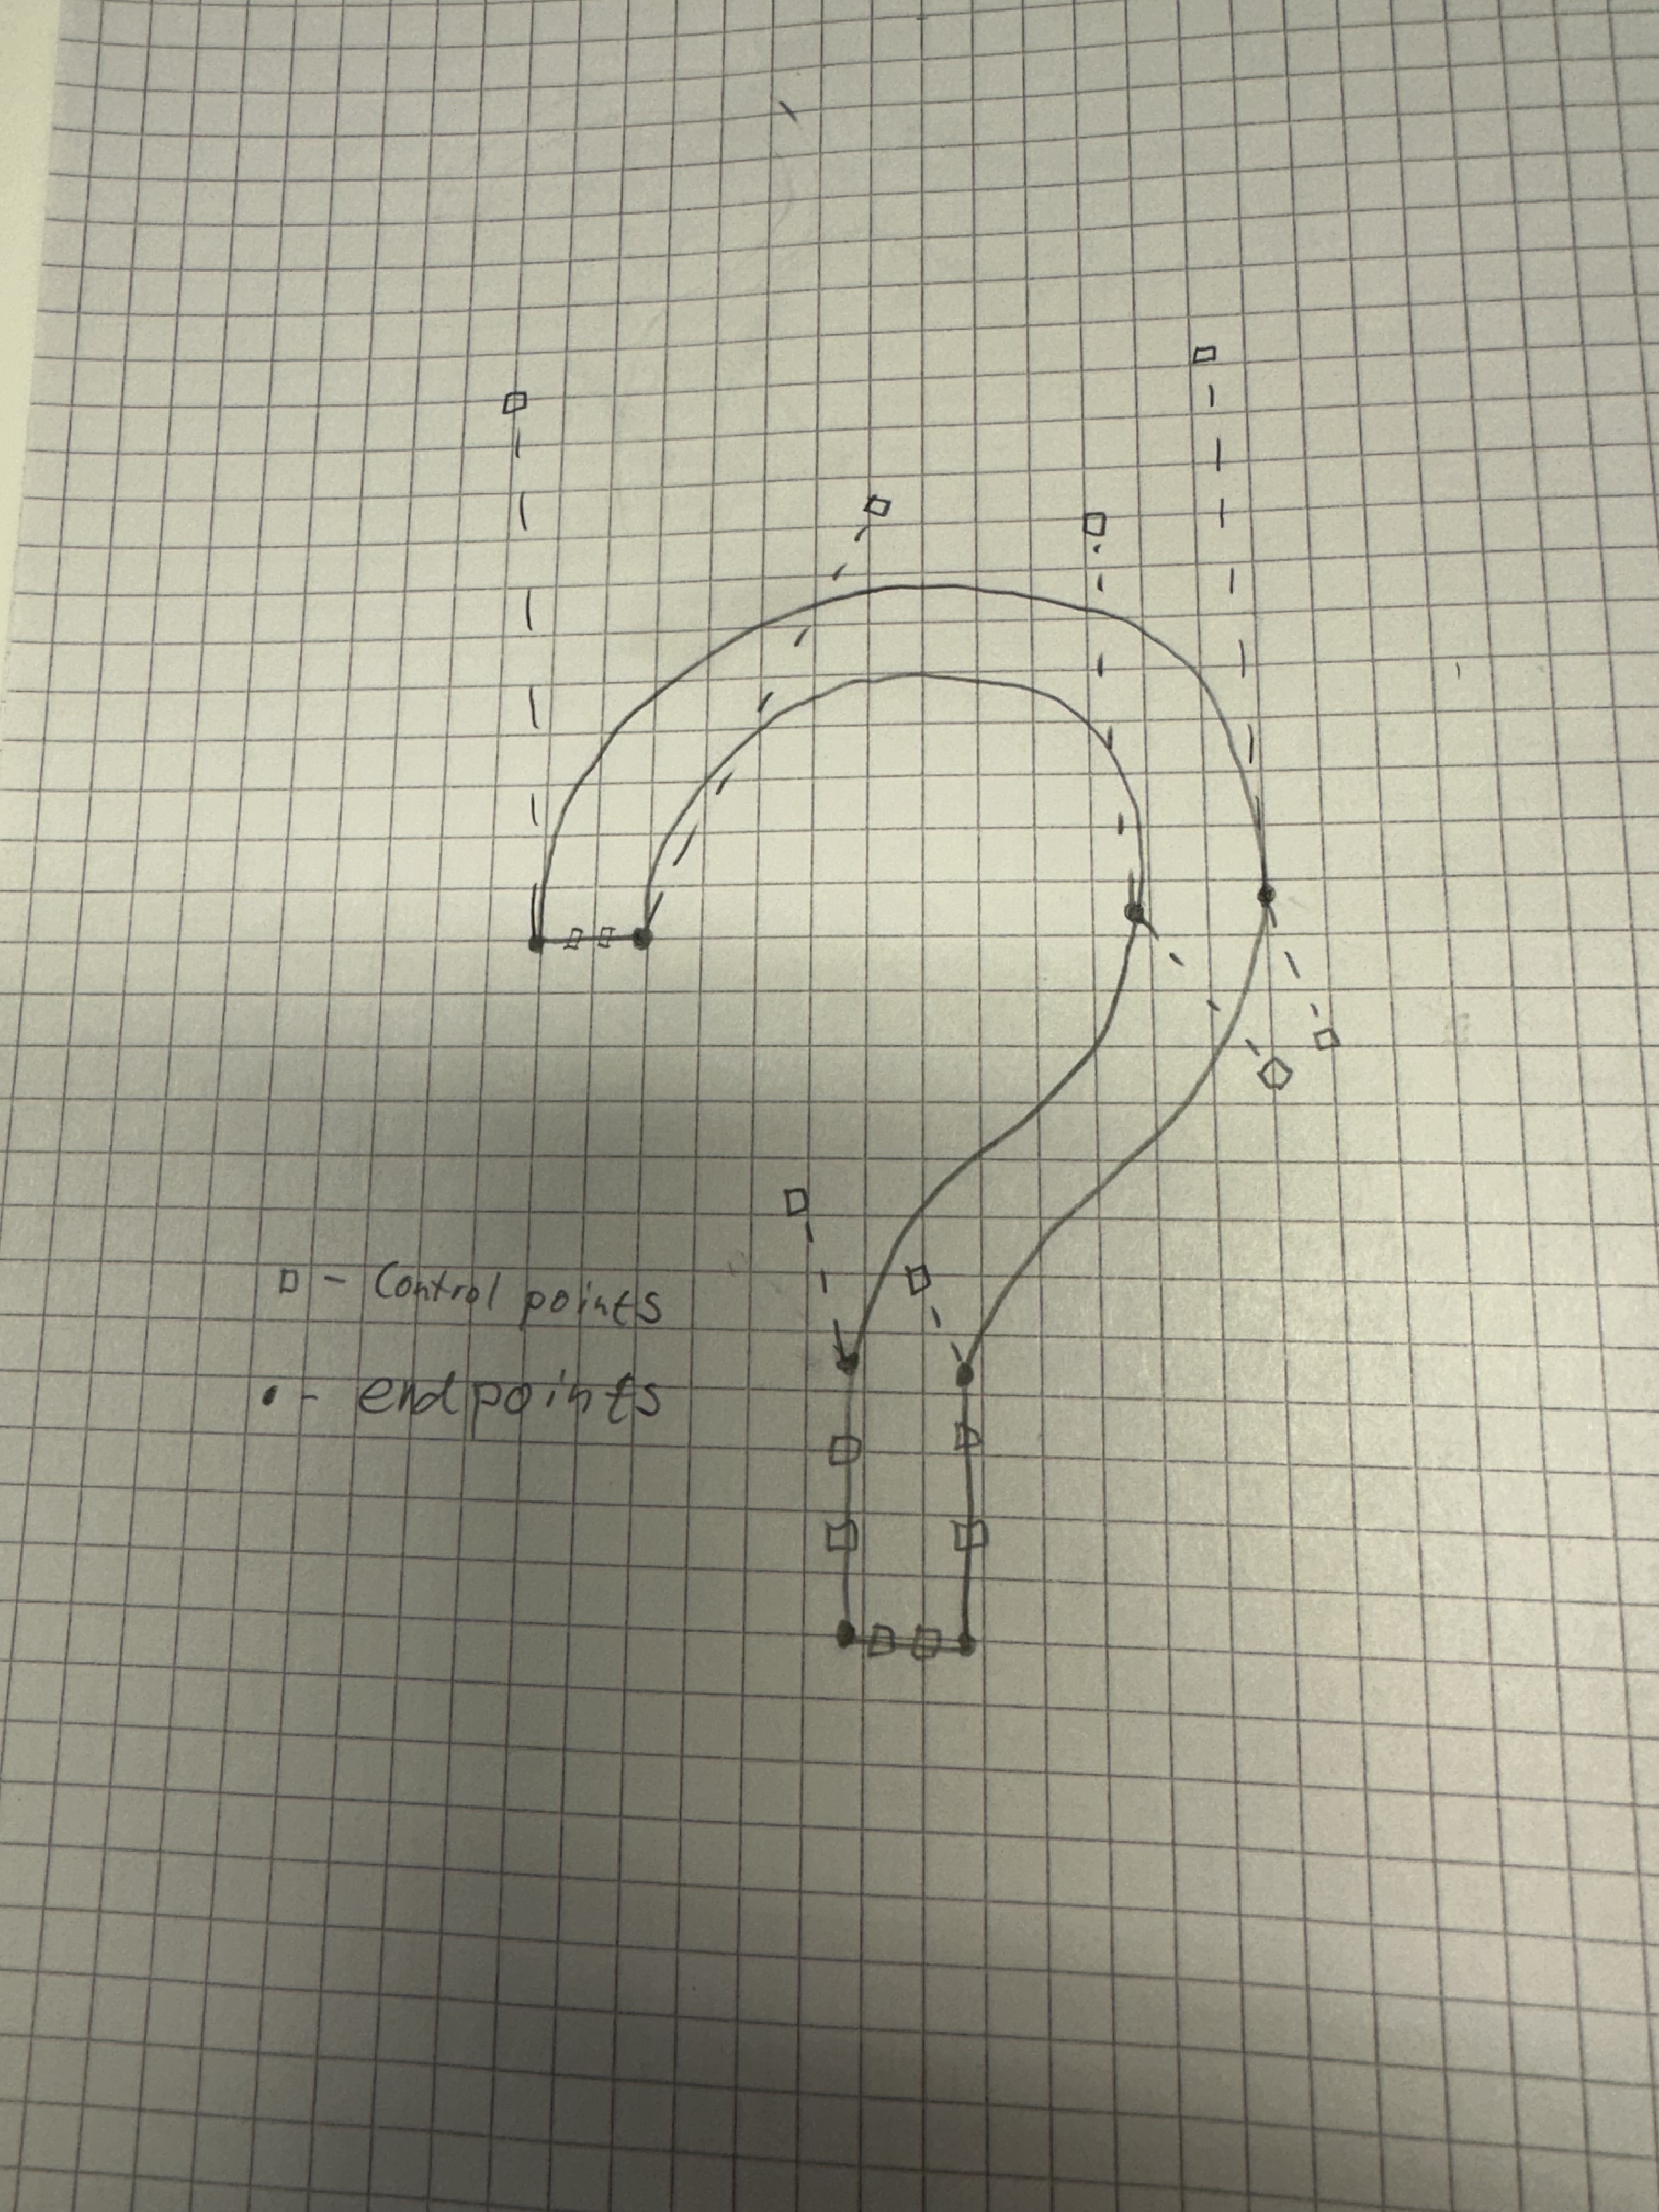 □ - Control points
• - endpoints